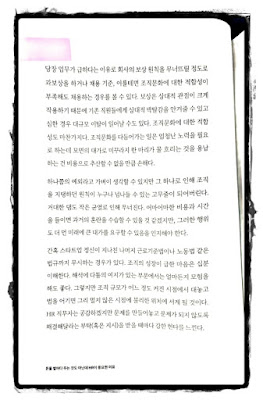 당장 업무가 급하다는 이유로 회사의 보상 원칙을 무너뜨릴 정도로
과보상을 하거나 채용 기준, 이를테면 조직문화에 대한 적합성이
부족해도 채용하는 경우를 볼 수 있다. 보상은 상대적 관점이 크게
작용하기 때문에 기존 직원들에게 상대적 박탈감을 안겨줄 수 있고
심한 경우 대규모 이탈이 일어날 수도 있다. 조직문화에 대한 적합
성도 마찬가지다. 조직문화를 다듬어가는 일은 엄청난 노력을 필요
로 하는데 모면의 대가로 미꾸라지 한 마리가 물 흐리는 것을 용납
하는 건 비용으로 추산할 수 없을 만큼 손해다.
하나쯤의 예외라고 가벼이 생각할 수 있지만 그 하나로 인해 조직
을 지탱하던 원칙이 누구나 넘나들 수 있는 고무줄이 되어버린다.
거대한 댐도 작은 균열로 인해 무너진다. 어마어마한 비용과 시간
을 들이면 과거의 혼란을 수습할 수 있을 것 같겠지만, 그러한 행위
도 더 먼 미래에 큰 대가를 요구할 수 있음을 인지해야 한다.
간혹 스타트업 정신이 지나친 나머지 근로기준법이나 노동법 같은
법규까지 무시하는 경우가 있다. 조직의 성장이 급한 마음은 십분
이해한다. 해석에 다툼의 여지가 있는 부분에서는 얼마든지 모험을
해도 좋다. 그렇지만 조직 규모가 어느 정도 커진 시점에서 대놓고
법을 어기면 그리 멀지 않은 시점에 물러설 위치에 서게 될 것이다.
HR 직무자는 공감하겠지만 문제를 만들어놓고 문제가 되지 않도록
해결해달라는 부탁(혹은 지시)을 받을 때마다 강한 현타를 느낀다.